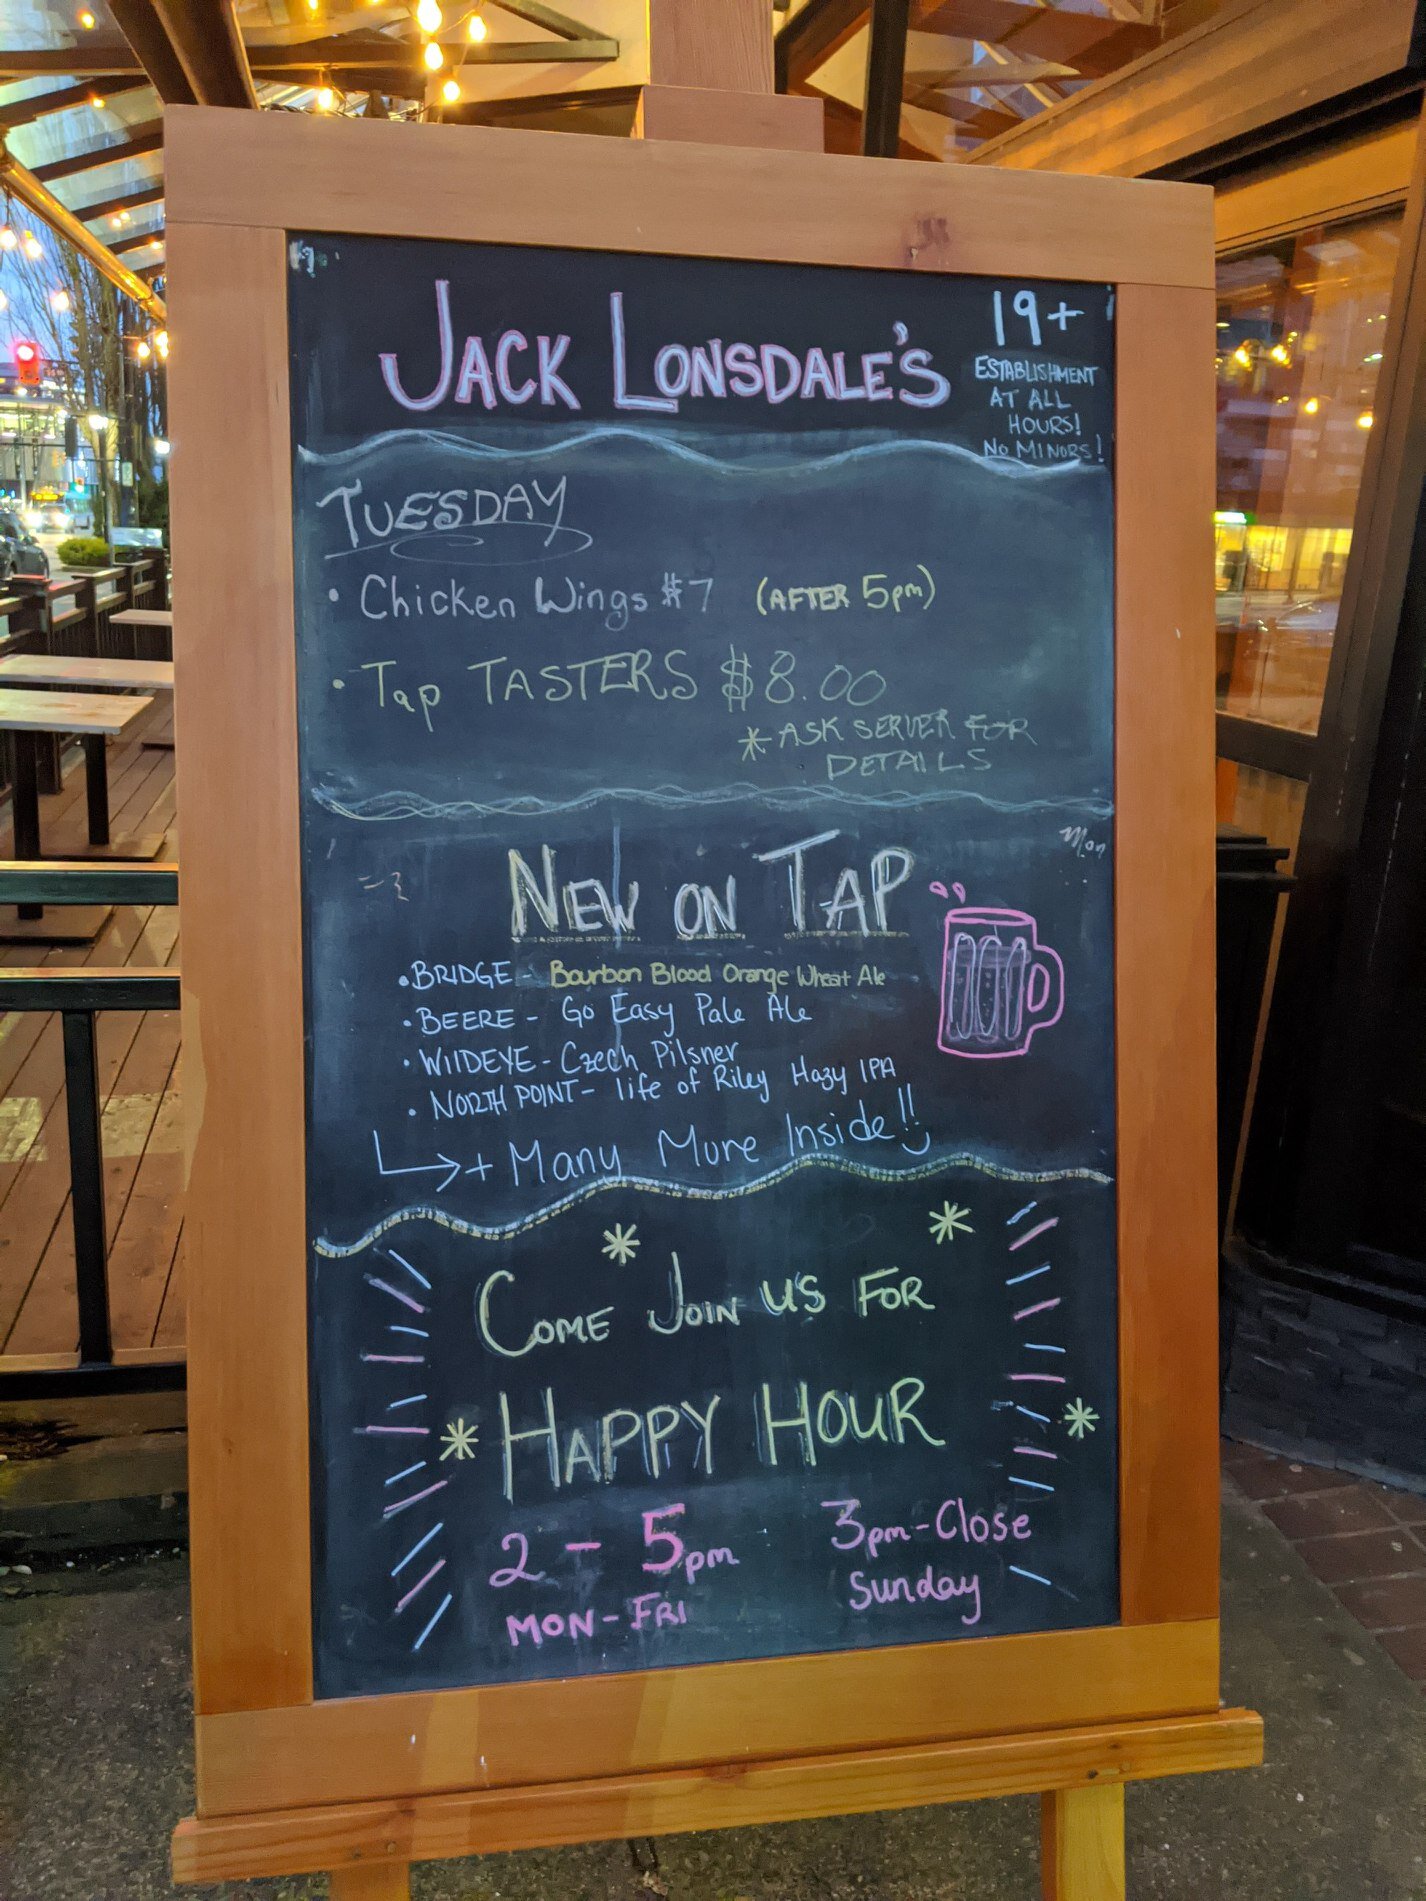 JACK LONSDALE'S
19+
ESTABLISHMENT
AT ALL
HOURS!
NO MINORS!
TUESDAY
• Chicken Wings $7 (AFTER 5pm)
• Tap TASTERS $8.00
* ASK SERVER FOR
DETAILS
Mon
NEW ON TAP
• BRIDGE - Bourbon Blood Orange Wheat Ale
• BEERE - Go Easy Pale Ale
• WIlDEYE - Czech Pilsner
• NORTH POINT - life of Riley Hazy IPA
+ Many More Inside!!
COME JOIN US FOR
HAPPY HOUR
2 - 5pm
MON - FRI
3pm - Close
Sunday